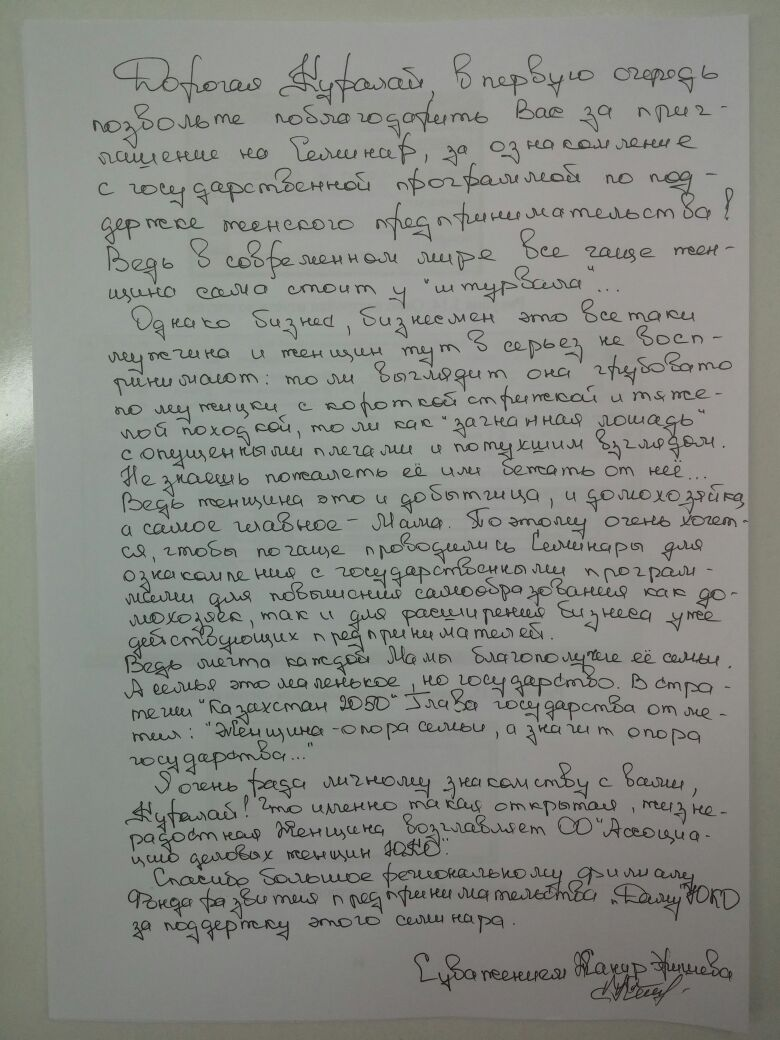 Дорогая Куралай, в первую очередь
позвольте поблагодарить Вас за приг-
лашение на Семинар, за ознакомление
с государственной программой по под-
держке женского предпринимательства!
Ведь в современном мире все чаще жен-
щина сама стоит у "штурвала"...
Однако бизнес, бизнесмен это все таки
мужчина и женщин тут в серьез не восп-
ринимают: то ли выглядит она грубовато
по мужицки с короткой стрижкой и тяже-
лой походкой, то ли как "загнанная лошадь"
с опущенными плечами и потухшим взглядом.
Не знаешь пожалеть её или бежать от неё...
Ведь женщина это и добытчица, и домохозяйка,
а самое главное - Мама. Поэтому очень хочет-
ся, чтобы почаще проводились Семинары для
ознакомления с государственными програм-
мами для повышения самообразования как до-
мохозяек, так и для расширения бизнеса уже
действующих предпринимателей.
Ведь мечта каждой Мамы благополучие её семьи.
А семья это маленькое, но государство. В стра-
тегии "Казахстан 2050" Глава государства отме-
тил: "Женщина - опора семьи, а значит опора
государства..."
Я очень рада личному знакомству с вами,
Куралай! Что именно такая открытая, жизне-
радостная Женщина возглавляет ОО "Ассоциа-
цию деловых женщин ЮКО".
Спасибо большое региональному филиалу
Фонда развития предпринимательства "Даму" ЮКО
за поддержку этого семинара.
С уважением